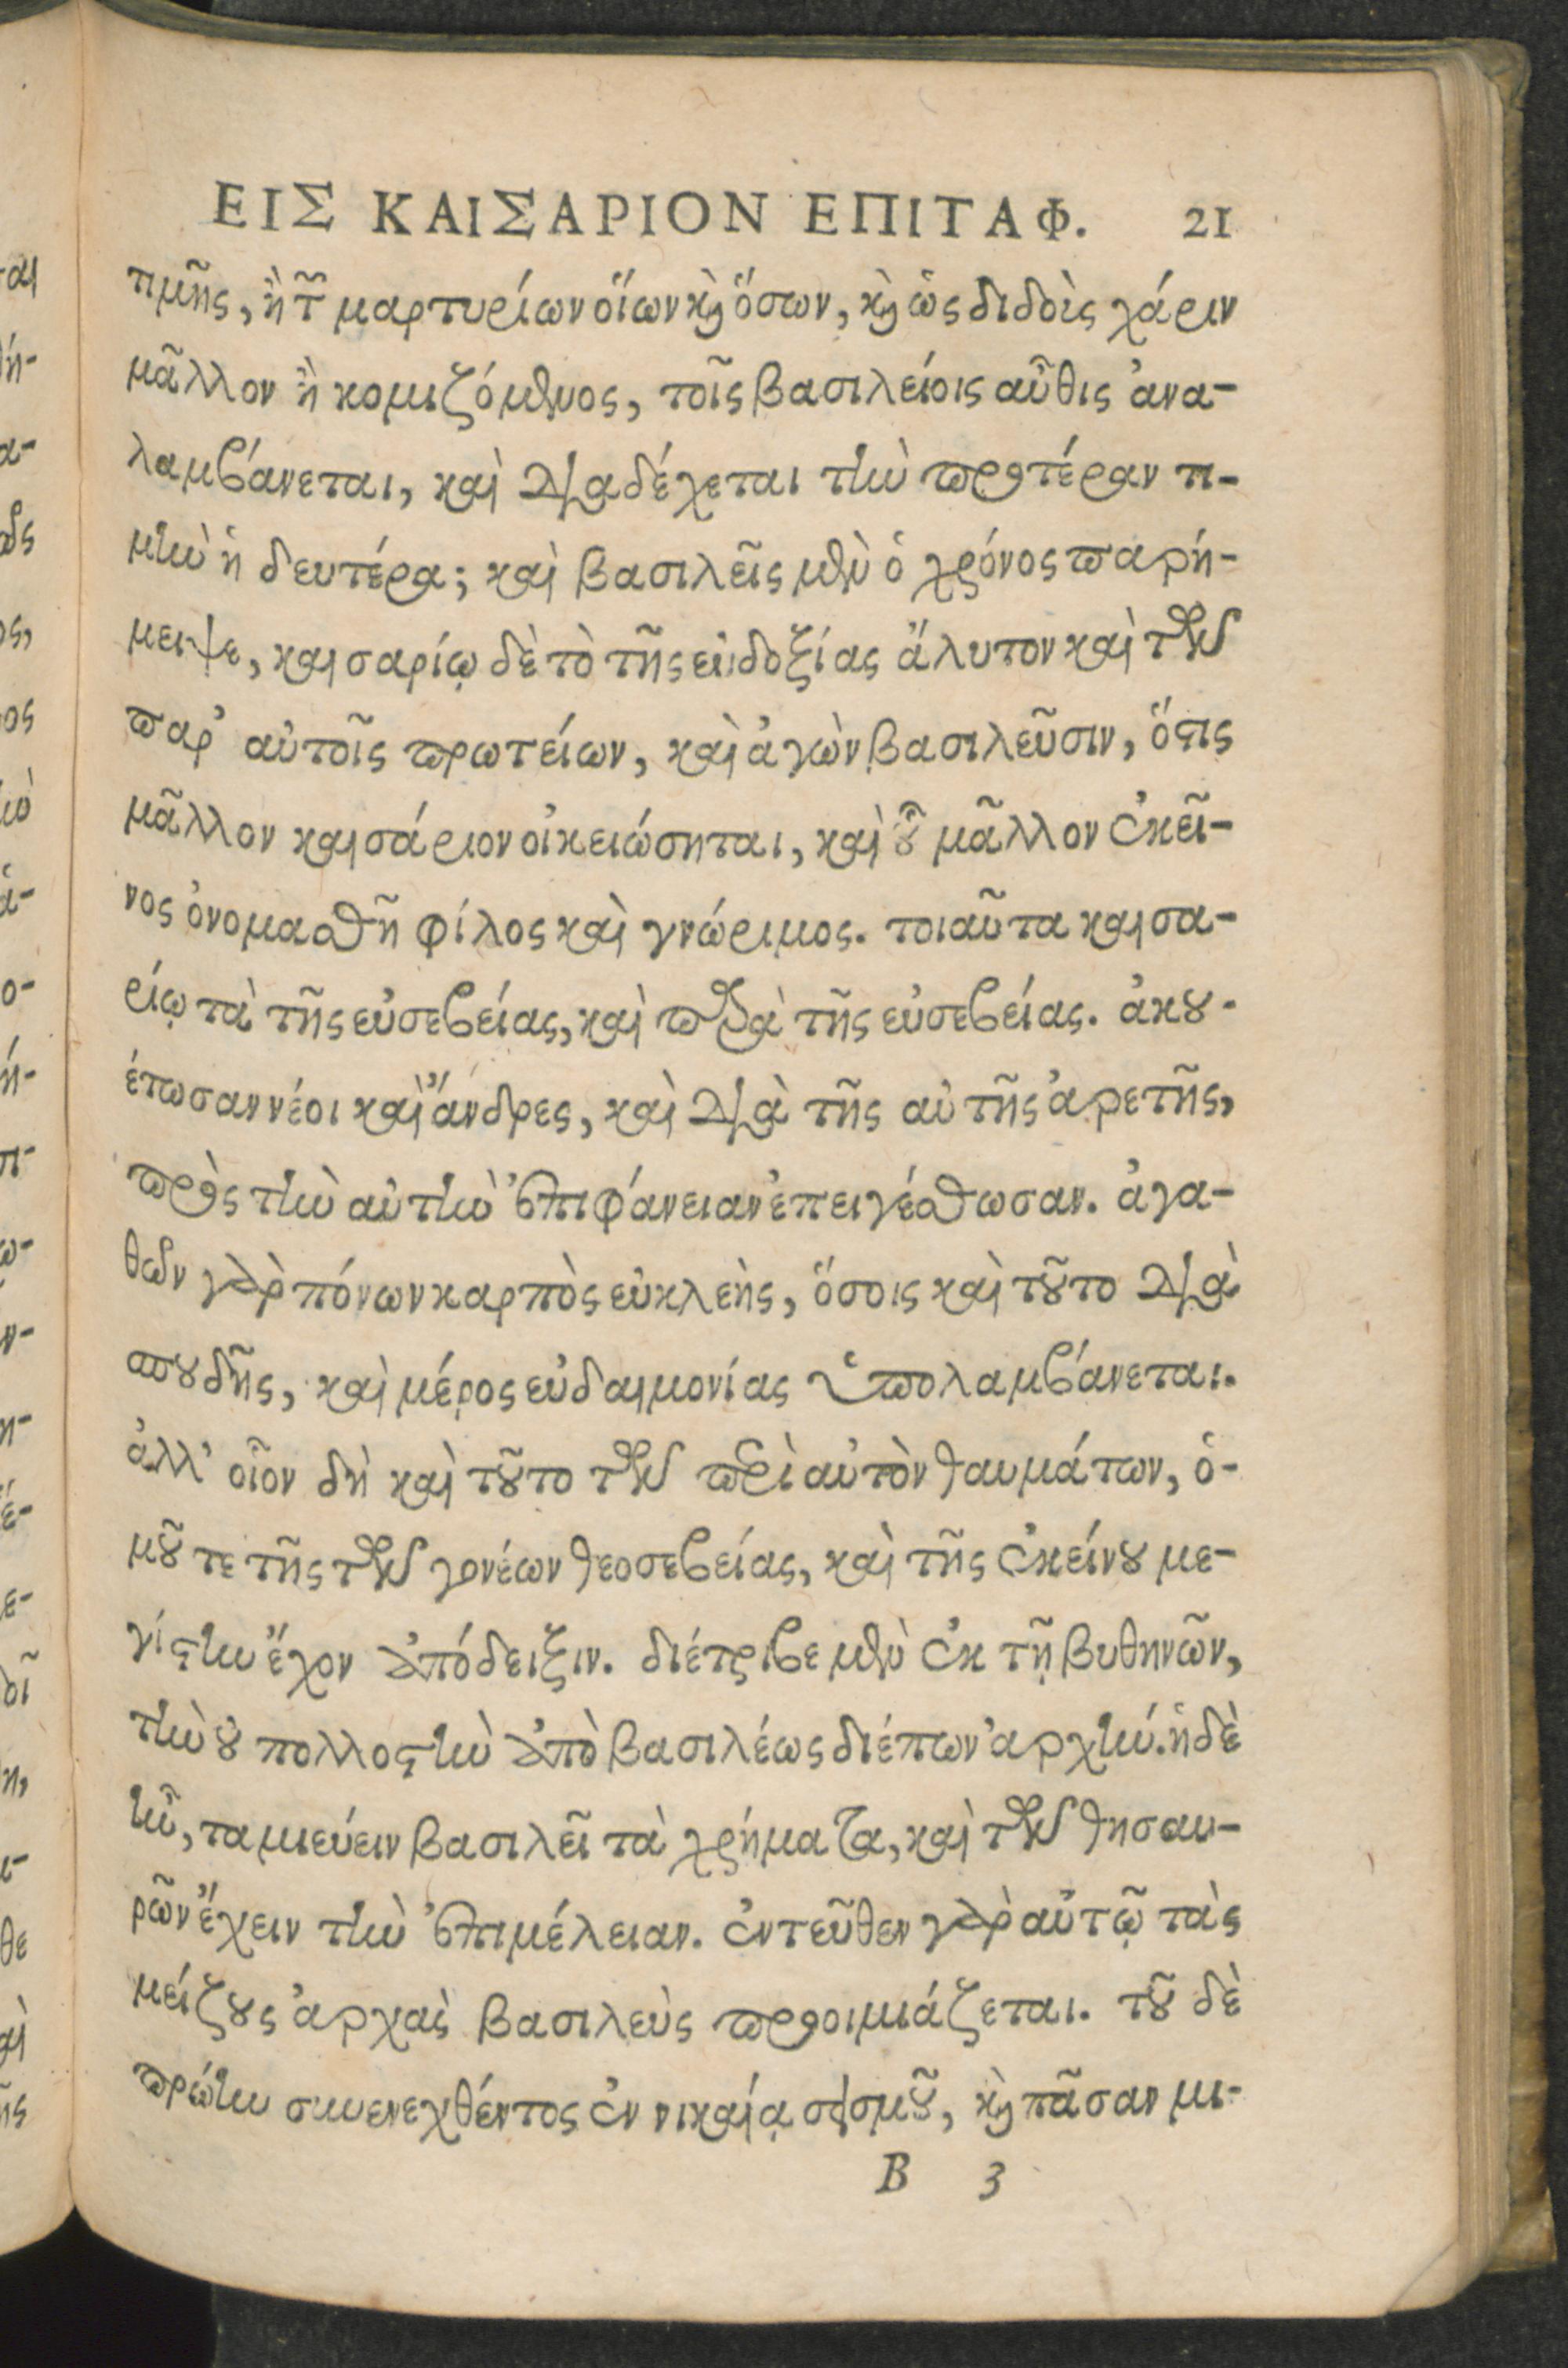 ΕΙΣ ΚΑΙΣΑΡΙΟΝ ΕΠΙΤΑΦ. 21
τιμῆς, ἢ τ̃ μαρτυρίων οἵων καὶ ὅσων, καὶ ὡς διδοὺς χάριν
μᾶλλον ἢ κομιζόμενος, τοῖς βασιλείοις αὖθις ἀνα-
λαμβάνεται, καὶ διαδέχεται τὴν προτέραν τι-
μὴν ἡ δευτέρα; καὶ βασιλεῖς μὲν ὁ χρόνος παρή-
μειψε, καισαρίῳ δὲ τὸ τῆς εὐδοξίας ἄλυτον καὶ τῶν
παρ' αὐτοῖς πρωτείων, καὶ ἀγὼν βασιλεῦσιν, ὅστις
μᾶλλον καισάριον οἰκειώσηται, καὶ οὗ μᾶλλον ἐκεῖ-
νος ὀνομασθῇ φίλος καὶ γνώριμος. τοιαῦτα καισα-
ρίῳ τὰ τῆς εὐσεβείας, καὶ παρὰ τῆς εὐσεβείας. ἀκου-
έτωσαν νέοι καὶ ἄνδρες, καὶ διὰ τῆς αὐτῆς ἀρετῆς,
πρὸς τὴν αὐτὴν ἐπιφάνειαν ἐπειγέσθωσαν. ἀγα-
θῶν γὰρ πόνων καρπὸς εὐκλεὴς, ὅσοις καὶ τοῦτο διὰ
σπουδῆς, καὶ μέρος εὐδαιμονίας ὑπολαμβάνεται.
ἀλλ' οἷον δὴ καὶ τοῦτο τῶν περὶ αὐτὸν θαυμάτων, ὁ-
μοῦ τε τῆς τῶν γονέων θεοσεβείας, καὶ τῆς ἐκείνου με-
γίστην ἔχον ἀπόδειξιν. διέτριβε μὲν ἐκ τῇ βυθηνῶν,
τὴν οὐ πολλοστὴν ἀπὸ βασιλέως διέπων ἀρχήν. ἡ δὲ
ἦν, ταμιεύειν βασιλεῖ τὰ χρήματα, καὶ τῶν θησαυ-
ρῶν ἔχειν τὴν ἐπιμέλειαν. ἐντεῦθεν γὰρ αὐτῷ τὰς
μείζους ἀρχὰς βασιλεὺς προοιμιάζεται. τοῦ δὲ
πρώην συνενεχθέντος ἐν νικαίᾳ σεισμοῦ, καὶ πᾶσαν μι-
B 3